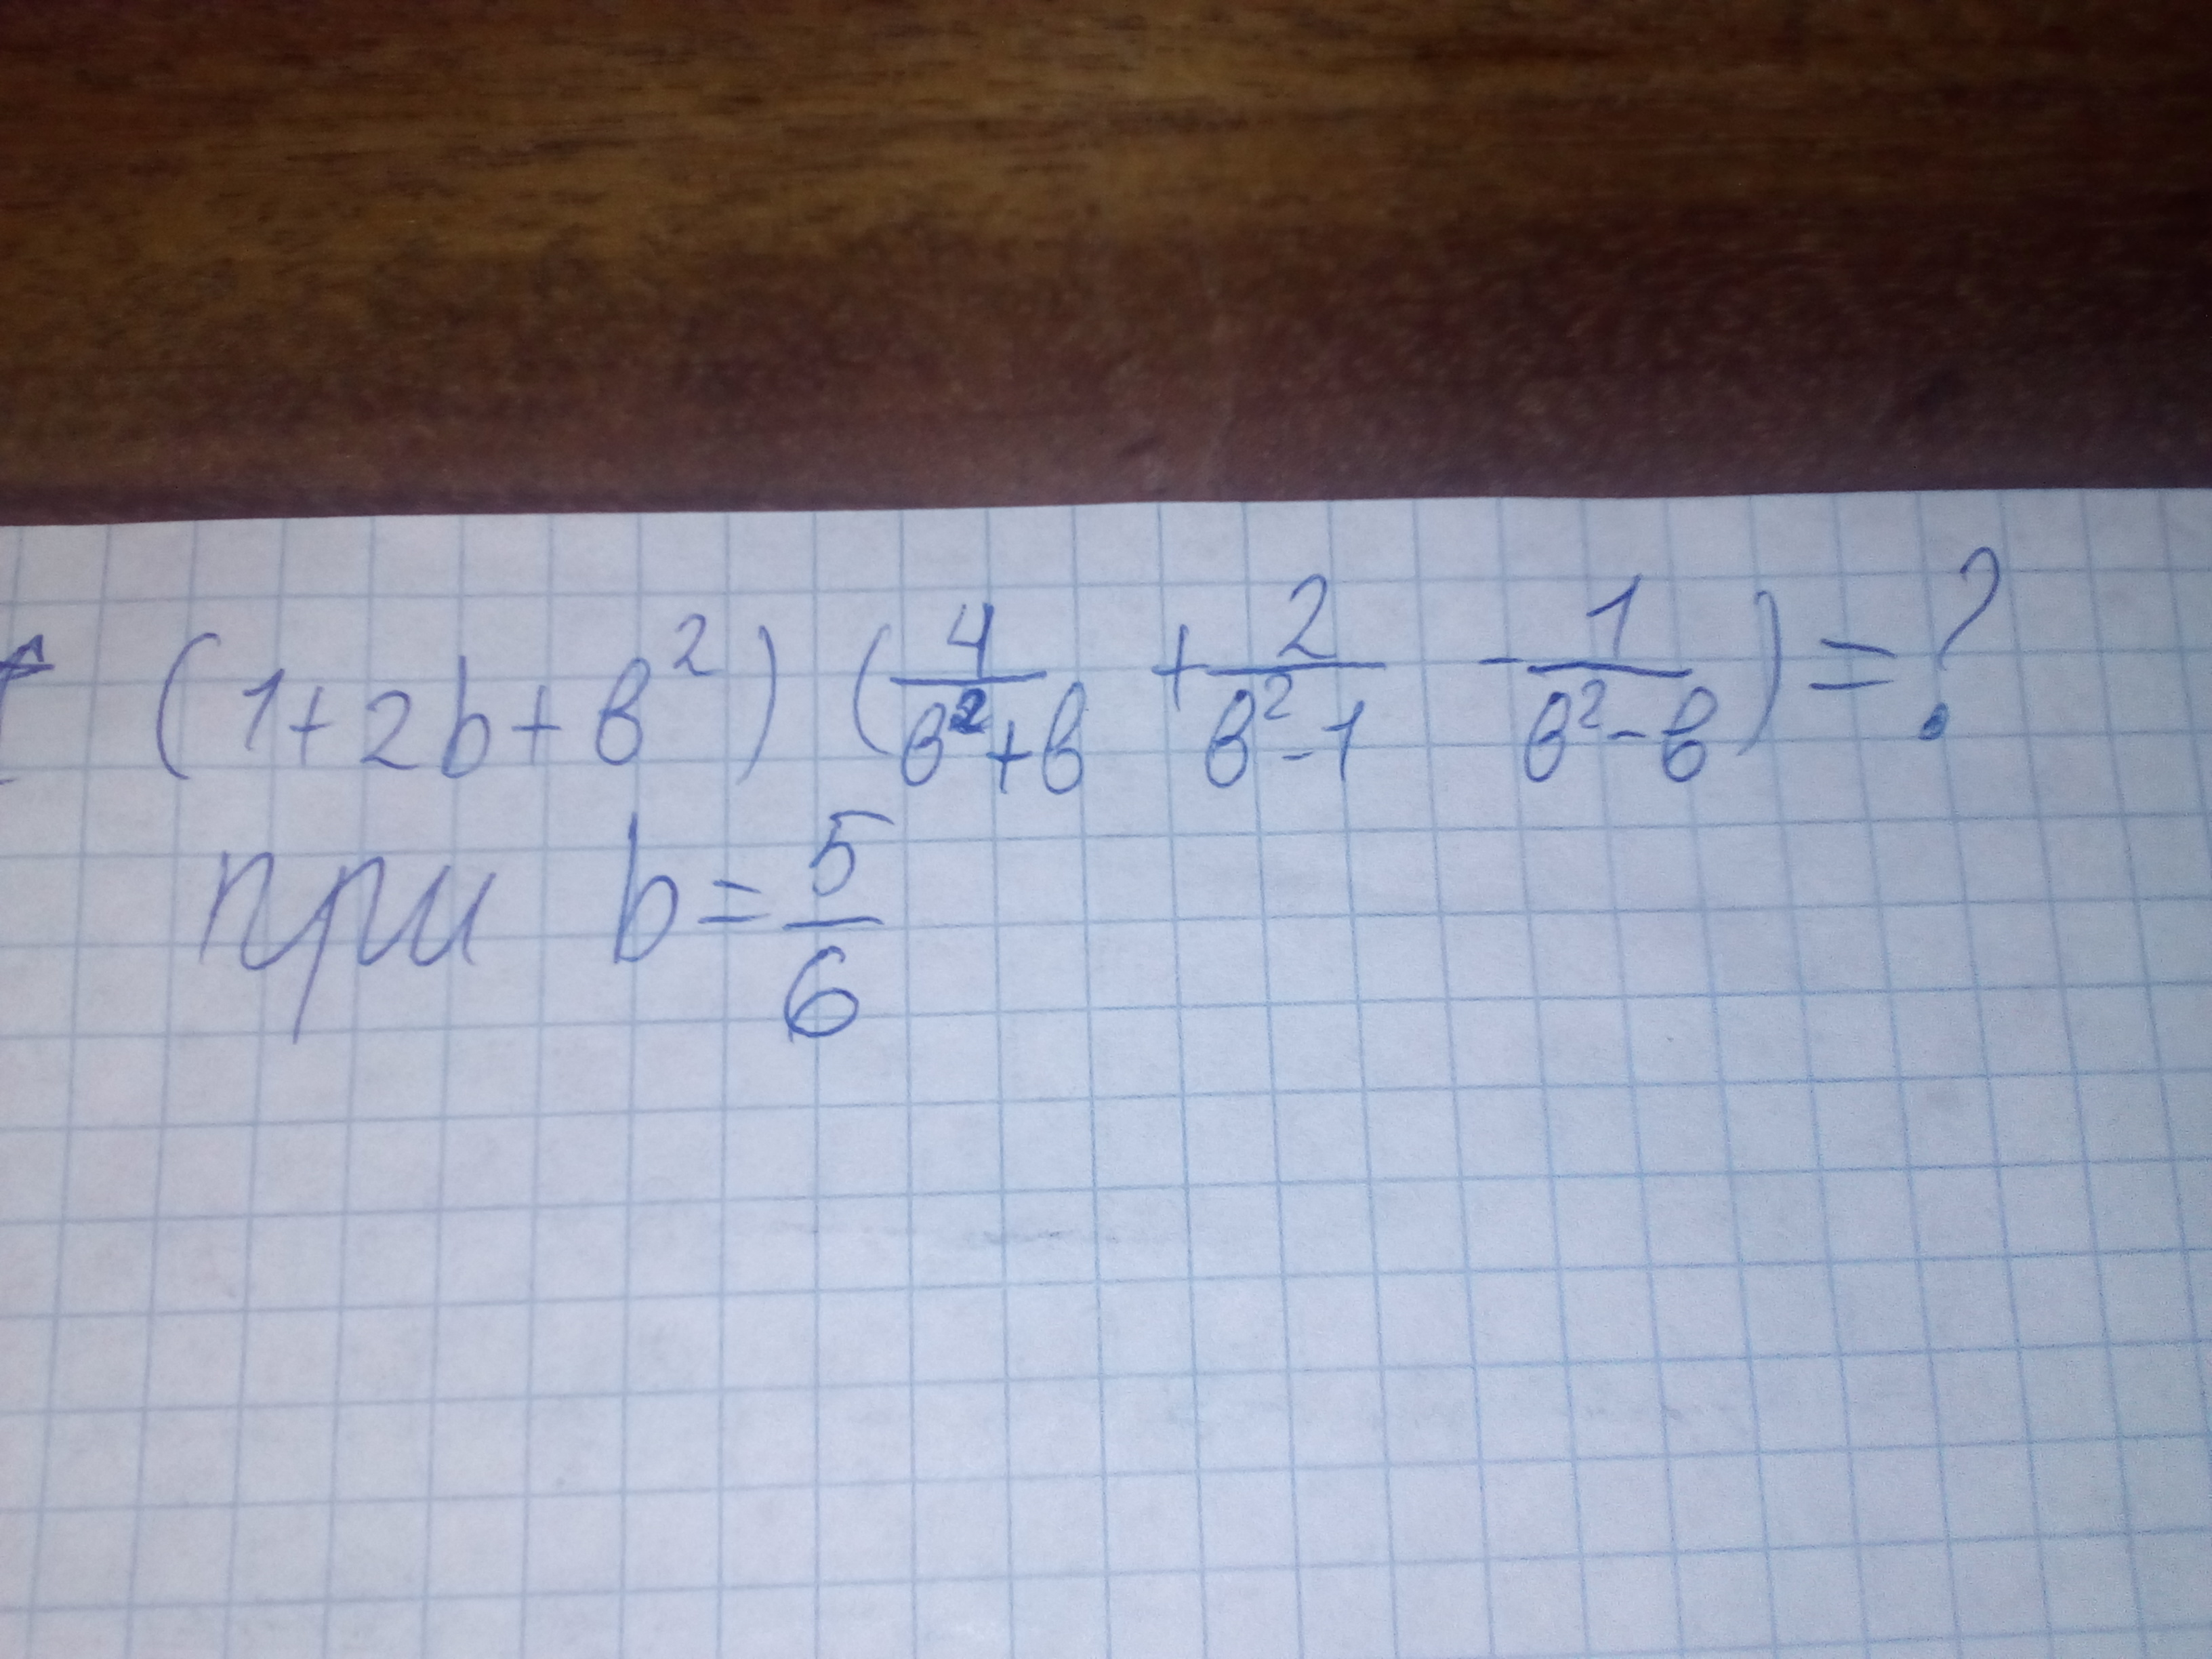 (1+2b+b²) (4/(b²+b) + 2/(b²-1) - 1/(b²-b)) = ?
при b = 5/6